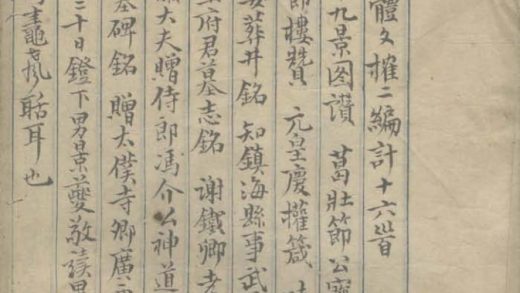 體文攉二編計十六首
九景图讚 葛壯節公寶
節樓贊 元皇慶權箴
葬井銘 知鎮海縣事武
府君墓志銘 谢鐵卿
大夫贈侍郎馮介公神道
墓碑銘 贈太僕寺卿廣
三十日鐙下男景夔敬讀
聒耳也